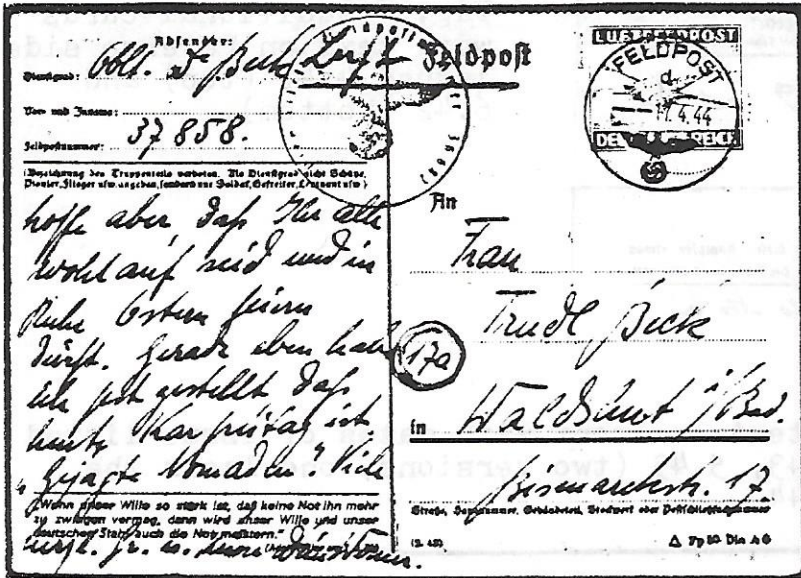 Absender:
Dienstgrad: Oblt. Dr. Beck
Vor- und Zuname:
Feldpostnummer: 37858.
(Bezeichnung des Truppenteils verboten. Als Dienstgrad nicht Schütze,
Pionier, Flieger usw. angeben, sondern nur Soldat, Gefreiter, Leutnant usw.)
hoffe aber daß Ihr alle
wohlauf seid und in
Ruhe Ostern feiern
dürft. Gerade eben habe
ich fest gestellt daß
heute Karfreitag ist.
"Gejagte Nomaden". Viele
"Wenn unser Wille so stark ist, daß keine Not ihn mehr
zu zwingen vermag, dann wird unser Wille und unser
deutscher Stahl auch die Not meistern."
Feldpost
LUFTFELDPOST
FELDPOST
d
4.44
DEUTSCHES REICH
An
Frau
Trudl Beck
17a
in Waldshut /Bad.
Bismarckstr. 17.
Straße, Hausnummer, Gebäudeteil, Stockwerk oder Postschließfachnummer
Din A6